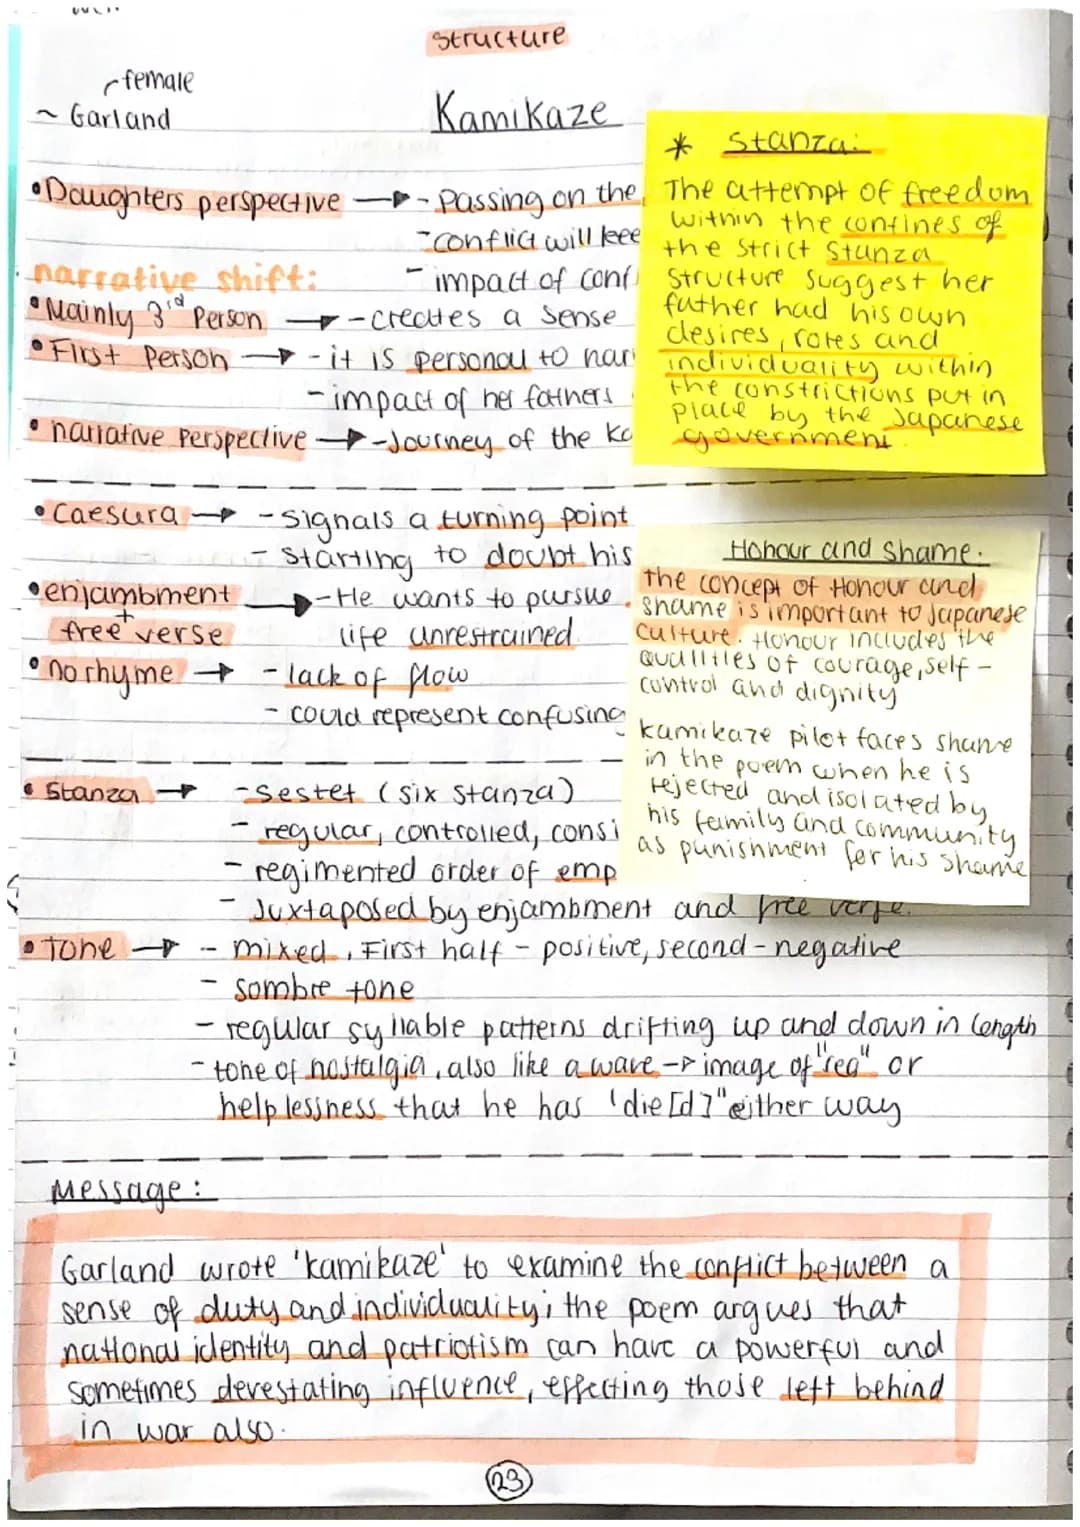 Structure
female
~ Garland
Kamikaze
•Daughters perspective → - Passing on the
- conflict will kee
narrative shift:
- impact of conf
• Mainly 3rd Person → - creates a sense
• First Person → - it is personal to nar
- impact of her fathers
• narrative Perspective → - Journey of the Ka
* Stanza:
The attempt of freedom
within the confines of
the strict stanza
structure suggest her
father had his own
desires, rotes and
individuality within
the constrictions put in
place by the Japanese
government.
• caesura → - signals a turning point
- starting to doubt his
• enjambment → - He wants to pursue
+
free verse life unrestrained
• no rhyme → - lack of flow
- could represent confusing
Honour and shame.
The concept of Honour and
shame is important to Japanese
culture. Honour includes the
Qualities of courage, self-
control and dignity
Kamikaze pilot faces shame
in the poem when he is
rejected and isolated by
his family and community
as punishment for his shame
• Stanza → - Sestet (six stanza)
- regular, controlled, consi
- regimented order of emp
- Juxtaposed by enjambment and free verse.
• Tone → - mixed, First half - positive, second - negative
- sombre tone
- regular syllable patterns drifting up and down in length
- tone of nostalgia, also like a wave → image of "sea" or
helplessness that he has 'die[d]" either way
Message:
Garland wrote 'kamikaze' to examine the conflict between a
sense of duty and individuality; the poem argues that
national identity and patriotism can have a powerful and
sometimes devestating influence, effecting those left behind
in war also.
23